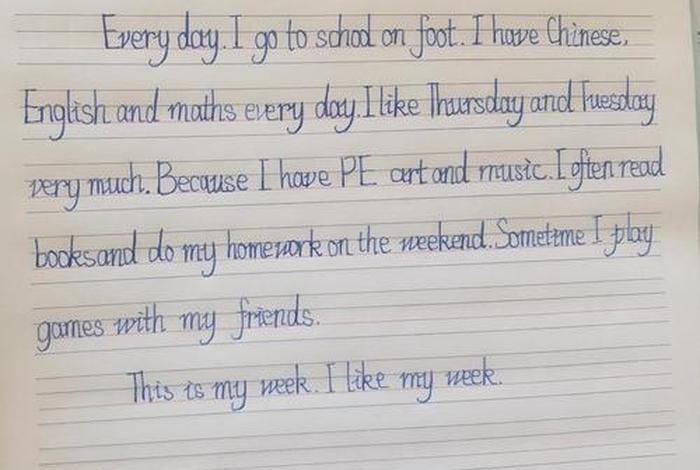 Every day. I go to school on foot. I have Chinese,
English and maths every day. I like Thursday and Tuesday
very much. Because I have PE art and music. I often read
books and do my homework on the weekend. Sometime I play
games with my friends.
This is my week. I like my week.